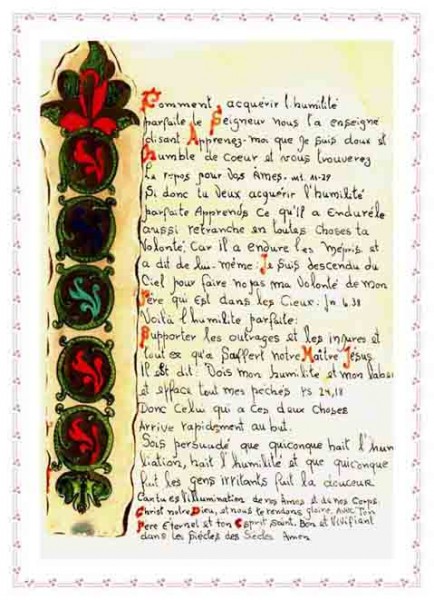 Comment acquérir l'humilité
parfaite le Seigneur nous l'a enseigné
disant Apprenez-moi que Je suis doux et
humble de Coeur et vous trouverez
Le repos pour vos Âmes. mt. 11-29
Si donc tu veux acquérir l'humilité
parfaite Apprends Ce qu'Il a Enduré, le
aussi retranche en toutes choses ta
Volonté; Car il a enduré les Mépris et
a dit de lui-même: Je suis descendu du
Ciel pour faire non pas ma Volonté de mon
Père qui Est dans les Cieux. Jn 6.38
Voilà l'humilité parfaite:
Supporter les outrages et les injures et
tout ce qu'a Souffert notre Maître Jésus
Il est dit: Vois mon humilité et mon labeu
et efface tout mes péchés Ps 24,18
Donc Celui qui a Ces deux Choses
Arrive rapidement au but.
Sois persuadé que quiconque hait l'hum
liation, hait l'humilité et que quiconque
fuit les gens irritants fuit la douceur
Car tu es l'illumination de nos Âmes et de nos Corps,
Christ notre Dieu, et nous te rendons gloire, Avec Ton
Père Eternel et ton Esprit Saint, Bon et Vivifiant
dans les siècles des Siècles Amen